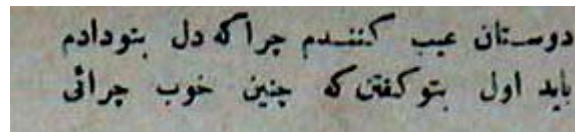 دوستان عیب کنندم چرا که دل بتو دادم
باید اول بتو کفتن که چنین خوب چرائی